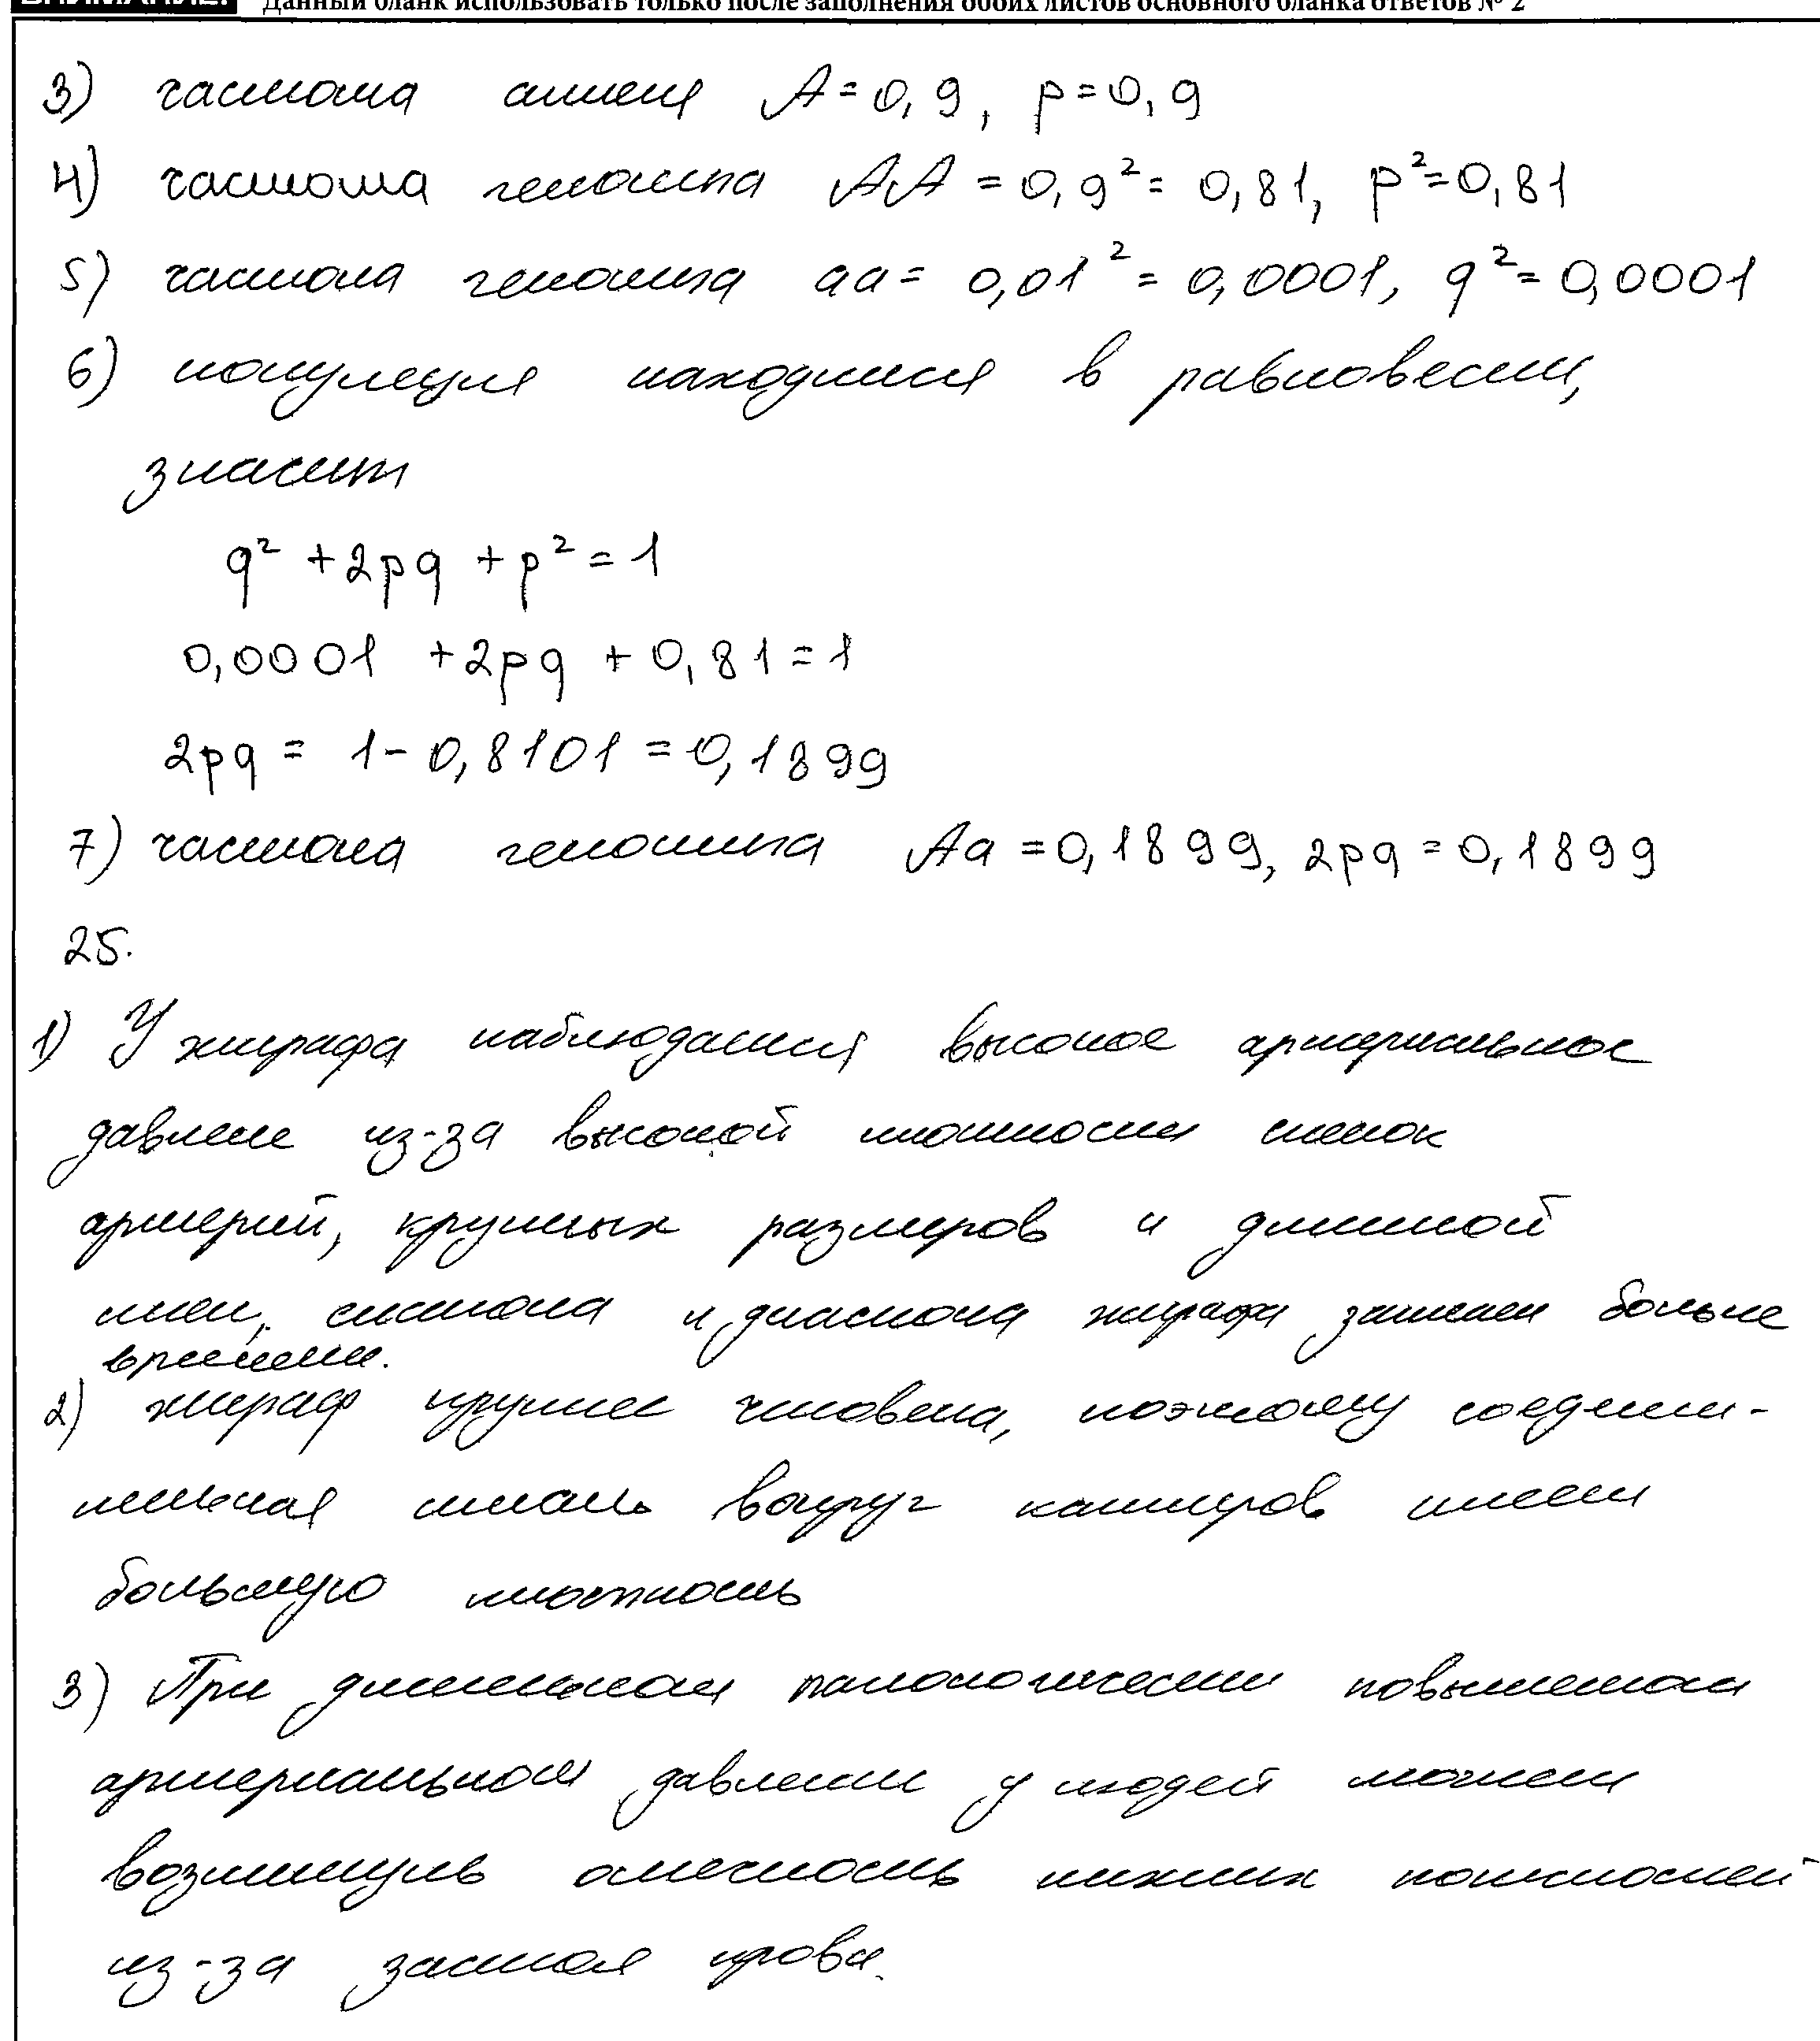 ВНИМАНИЕ! Данный бланк использовать только после заполнения обоих листов основного бланка ответов № 2
3) частота аллеля A = 0,9, p = 0,9
4) частота генотипа AA = 0,9² = 0,81, p² = 0,81
5) частота генотипа aa = 0,01² = 0,0001, q² = 0,0001
6) популяция находится в равновесии,
значит
q² + 2pq + p² = 1
0,0001 + 2pq + 0,81 = 1
2pq = 1 - 0,8101 = 0,1899
7) частота генотипа Aa = 0,1899, 2pq = 0,1899
25.
1) У жирафа наблюдается высокое артериальное
давление из-за высокой плотности стенок
артерий, крупных размеров и длинной
шеи, систола и диастола жирафа занимает больше
времени.
2) жираф крупнее человека, поэтому соедини-
тельная ткань вокруг капилляров имеет
большую плотность
3) При длительном патологически повышенном
артериальном давлении у людей может
возникнуть отечность нижних конечностей
из-за застоя крови.